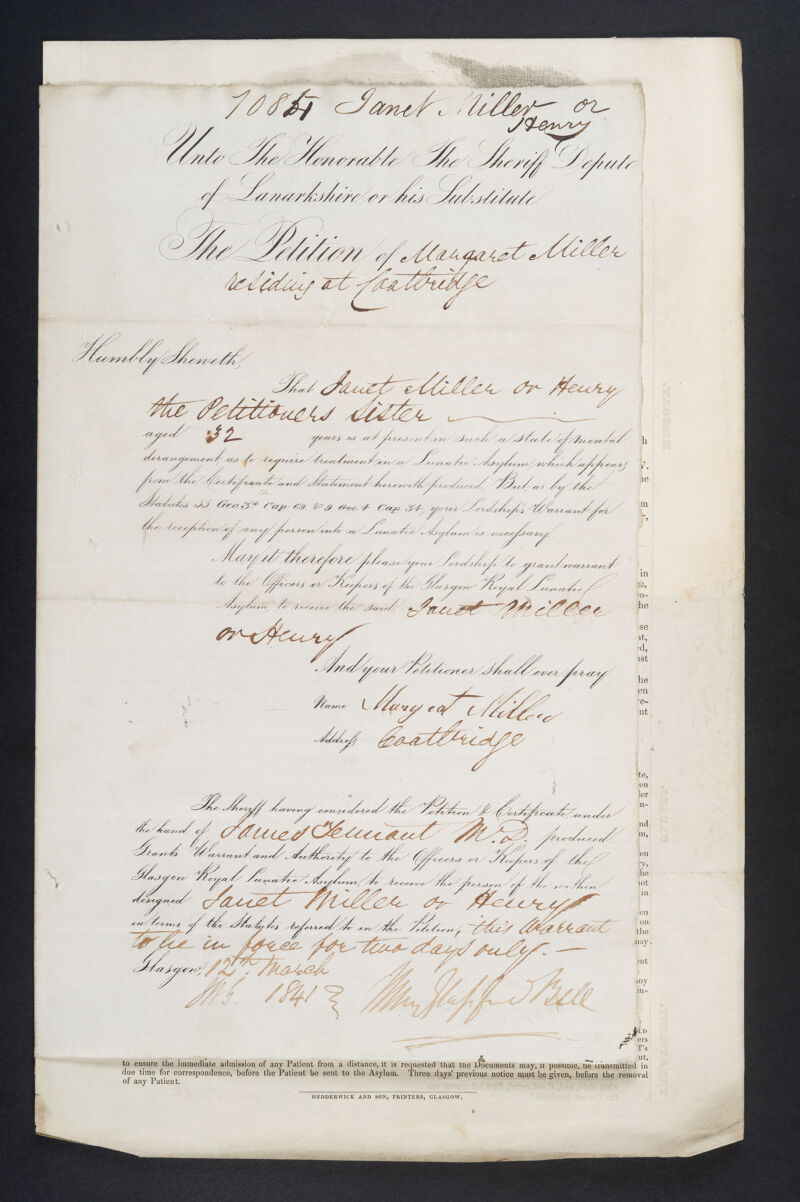 Janet Miller or
Henry
Unto The Honorable The Sheriff Depute
of Lanarkshire or his Substitute
The Petition of Margaret Miller
residing at Coatbridge
Humbly Sheweth,
That Janet Miller or Henry
the Petitioners Sister
aged 32 years is at present in such a state of mental
derangement as to require treatment in a Lunatic Asylum which appears
from the Certificate and Statement herewith produced. But as by the
Statutes 55 Geo 3d Cap 69 & 9 Geo. 4 Cap. 34, your Lordship's Warrant for
the reception of any person into a Lunatic Asylum is necessary.
May it therefore please your Lordship to grant warrant
to the Officers or Keepers of the Glasgow Royal Lunatic
Asylum, to receive the said Janet Miller
or Henry
And your Petitioner shall ever pray
Name Margaret Miller
Address Coatbridge
The Sheriff having considered the Petition & Certificate under
the hand of James Tennant M.D. produced
Grants Warrant and Authority to the Officers or Keepers of the
Glasgow Royal Lunatic Asylum, to receive the person of the within
designed Janet Miller or Henry
in terms of the Statutes referred to in the Petition, this Warrant
to be in force for two days only. —
Glasgow, 12th March
1841 Bell
to ensure the immediate admission of any Patient from a distance, it is requested that the Documents may, if possible, be transmitted in
due time for correspondence, before the Patient be sent to the Asylum. Three days' previous notice must be given, before the removal
of any Patient.
HEDDERWICK AND SON, PRINTERS, GLASGOW.